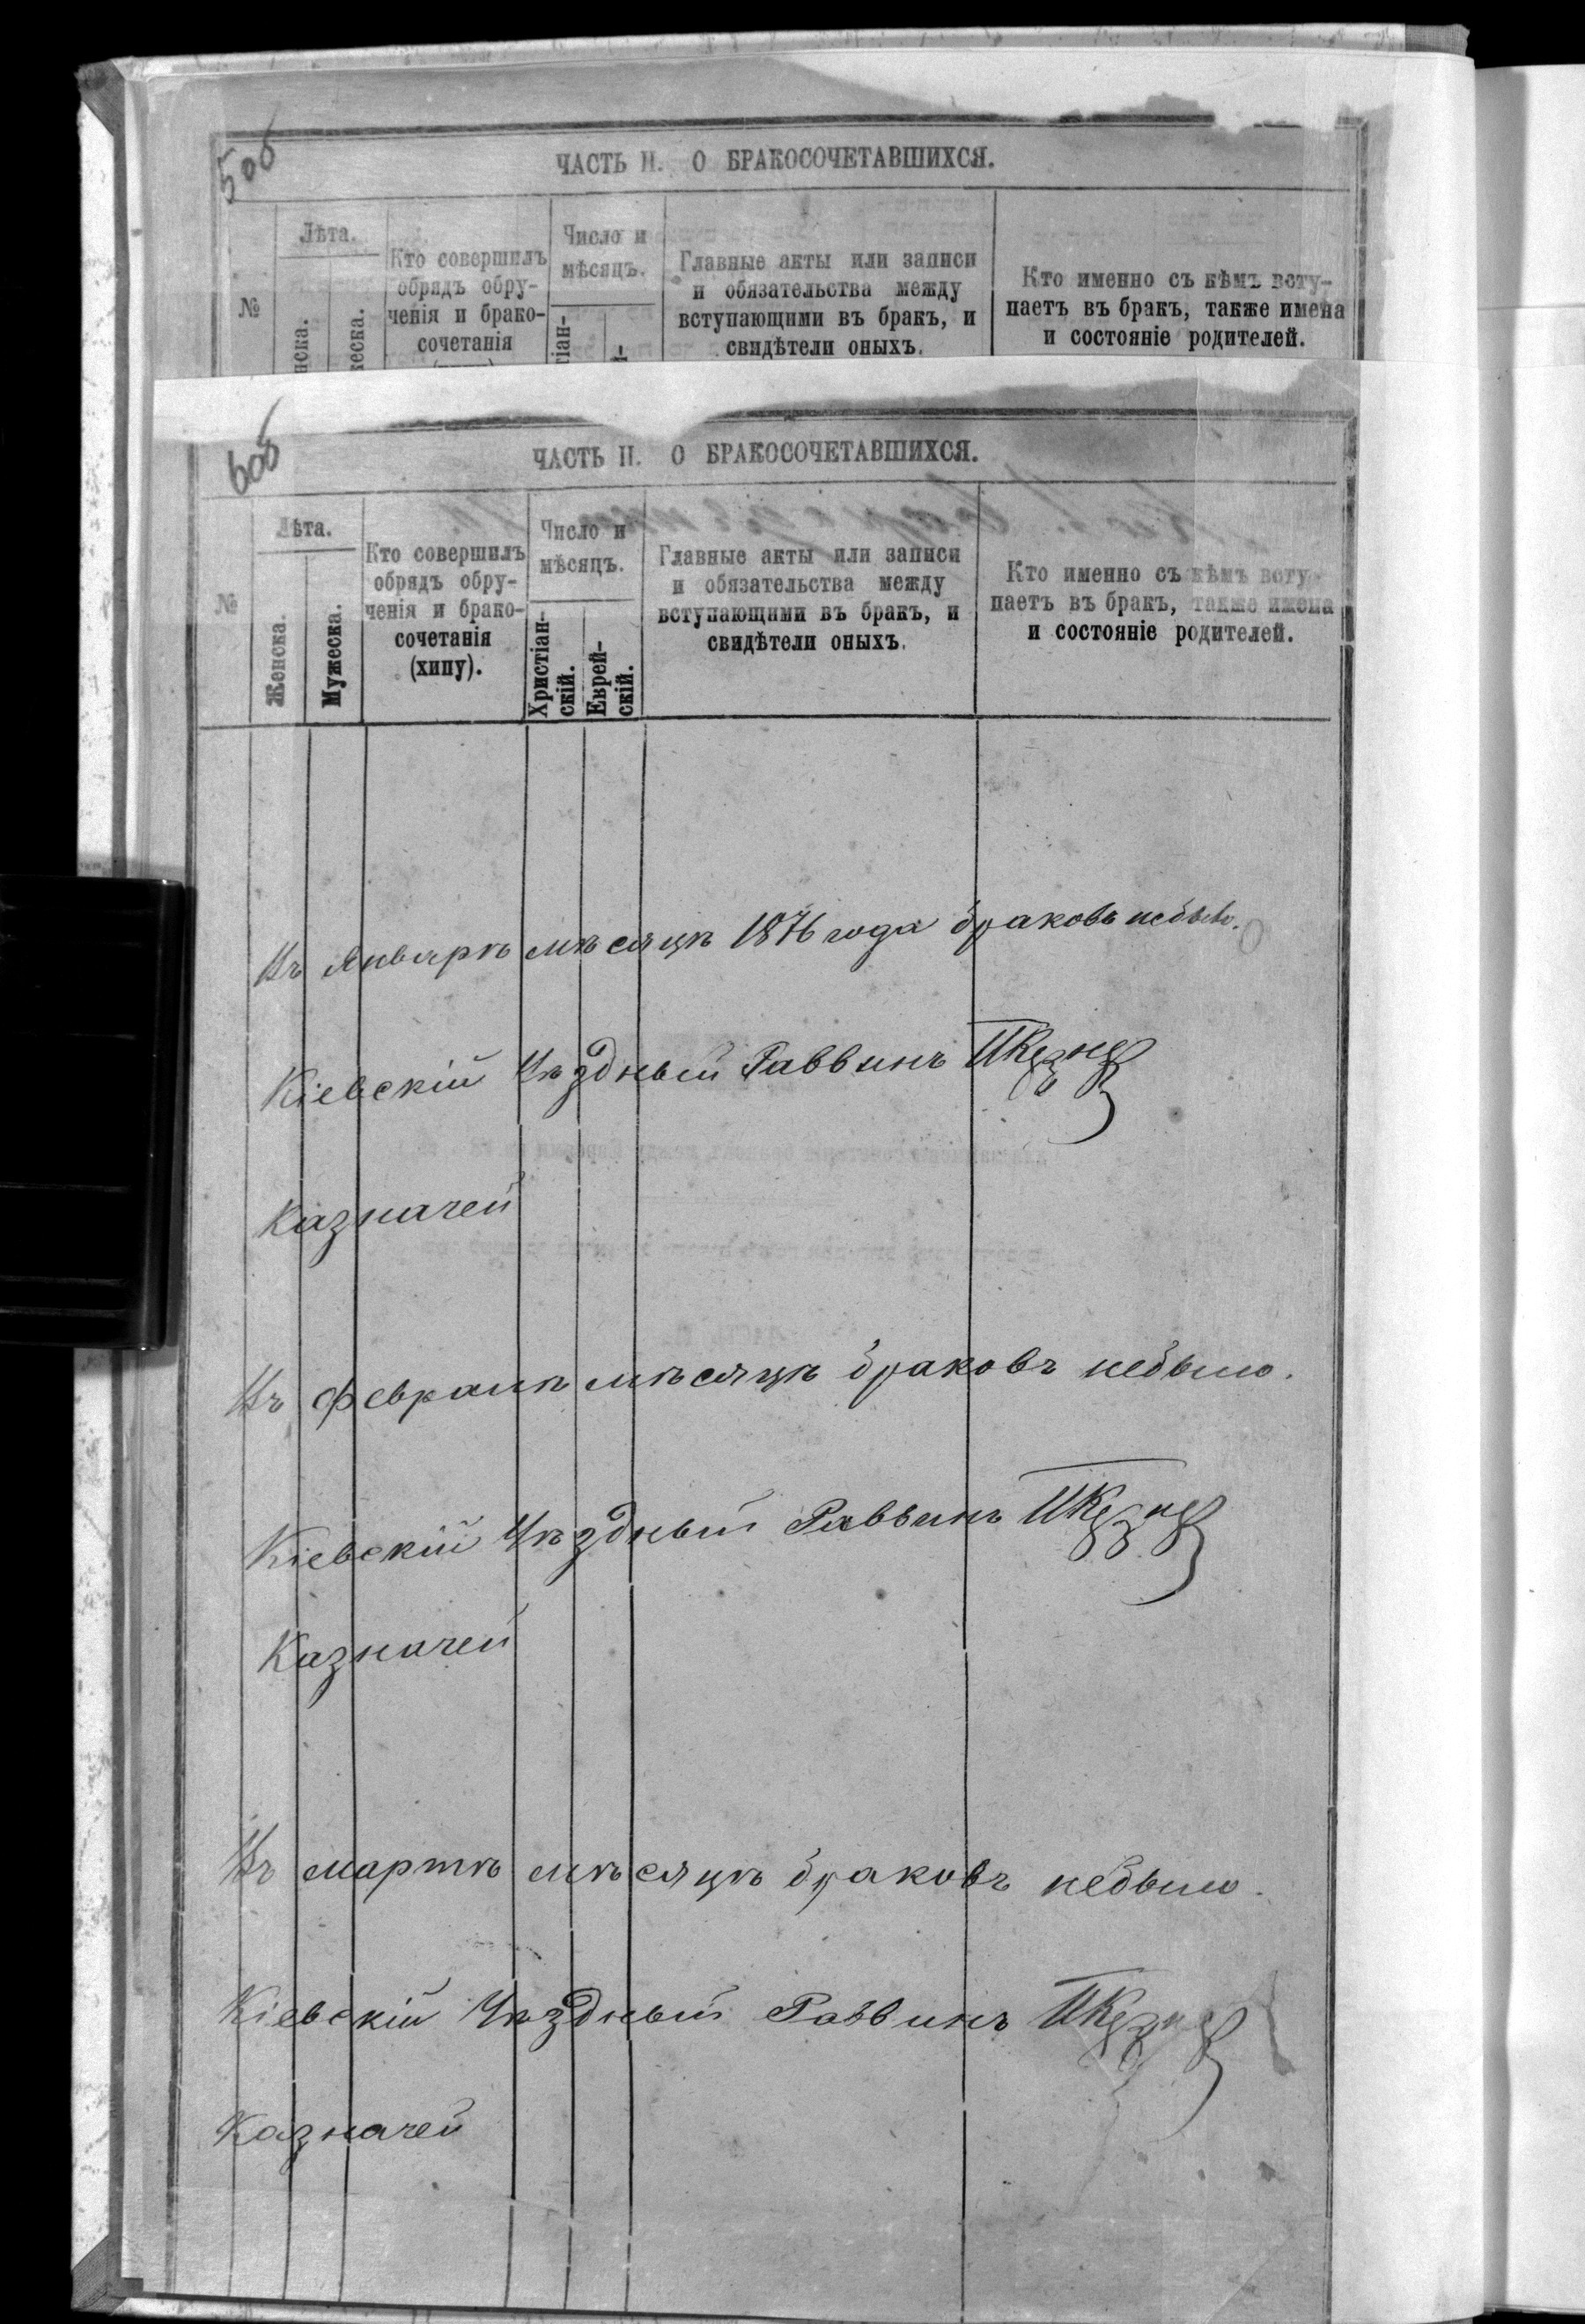 506
ЧАСТЬ II. О БРАКОСОЧЕТАВШИХСЯ.
№
Лѣта.
нска.
жеска.
Кто совершилъ
обрядъ обру-
ченія и брако-
сочетанія
Число и
мѣсяцъ.
тіан-
Главные акты или записи
и обязательства между
вступающими въ бракъ, и
свидѣтели оныхъ.
Кто именно съ кѣмъ всту-
паетъ въ бракъ, также имена
и состояніе родителей.
606
ЧАСТЬ II. О БРАКОСОЧЕТАВШИХСЯ.
№
Лѣта.
Женска.
Мужеска.
Кто совершилъ
обрядъ обру-
ченія и брако-
сочетанія
(хипу).
Число и
мѣсяцъ.
Христіан-
скій.
Еврей-
скій.
Главные акты или записи
и обязательства между
вступающими въ бракъ, и
свидѣтели оныхъ.
Кто именно съ кѣмъ всту-
паетъ въ бракъ, также имена
и состояніе родителей.
Въ Январѣ мѣсяцѣ 1876 года браковъ небыло.
Кіевскій Уѣздный Раввинъ
Казначей
Въ февралѣ мѣсяцѣ браковъ небыло.
Кіевскій Уѣздный Раввинъ
Казначей
Въ мартѣ мѣсяцѣ браковъ небыло.
Кіевскій Уѣздный Раввинъ
Казначей